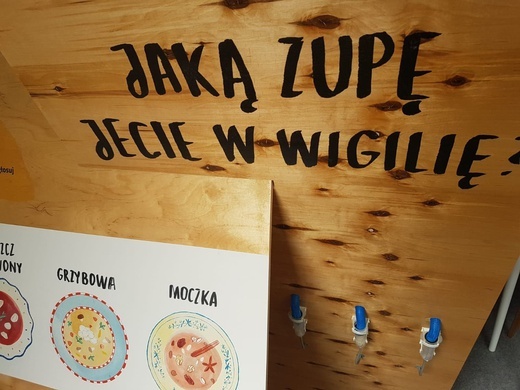 JAKĄ ZUPĘ
JECIE W WIGILIĘ?
GRZYBOWA
MOCZKA